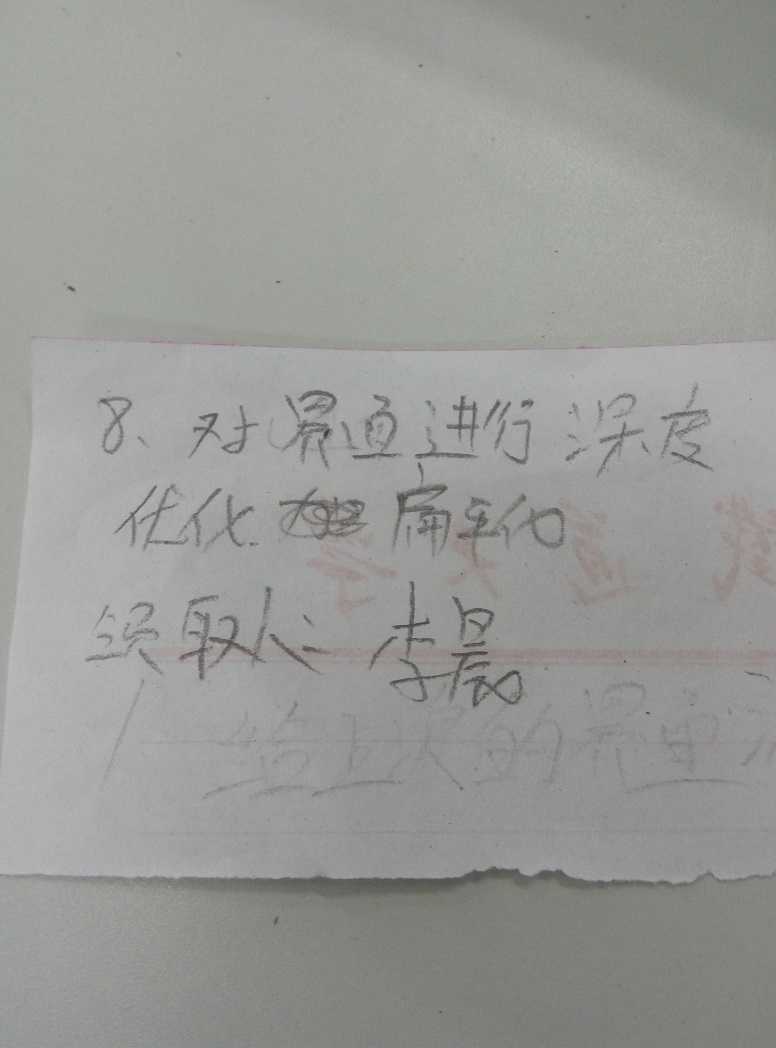 8、对界面进行深度
优化 扁平化
领取人: 李晨